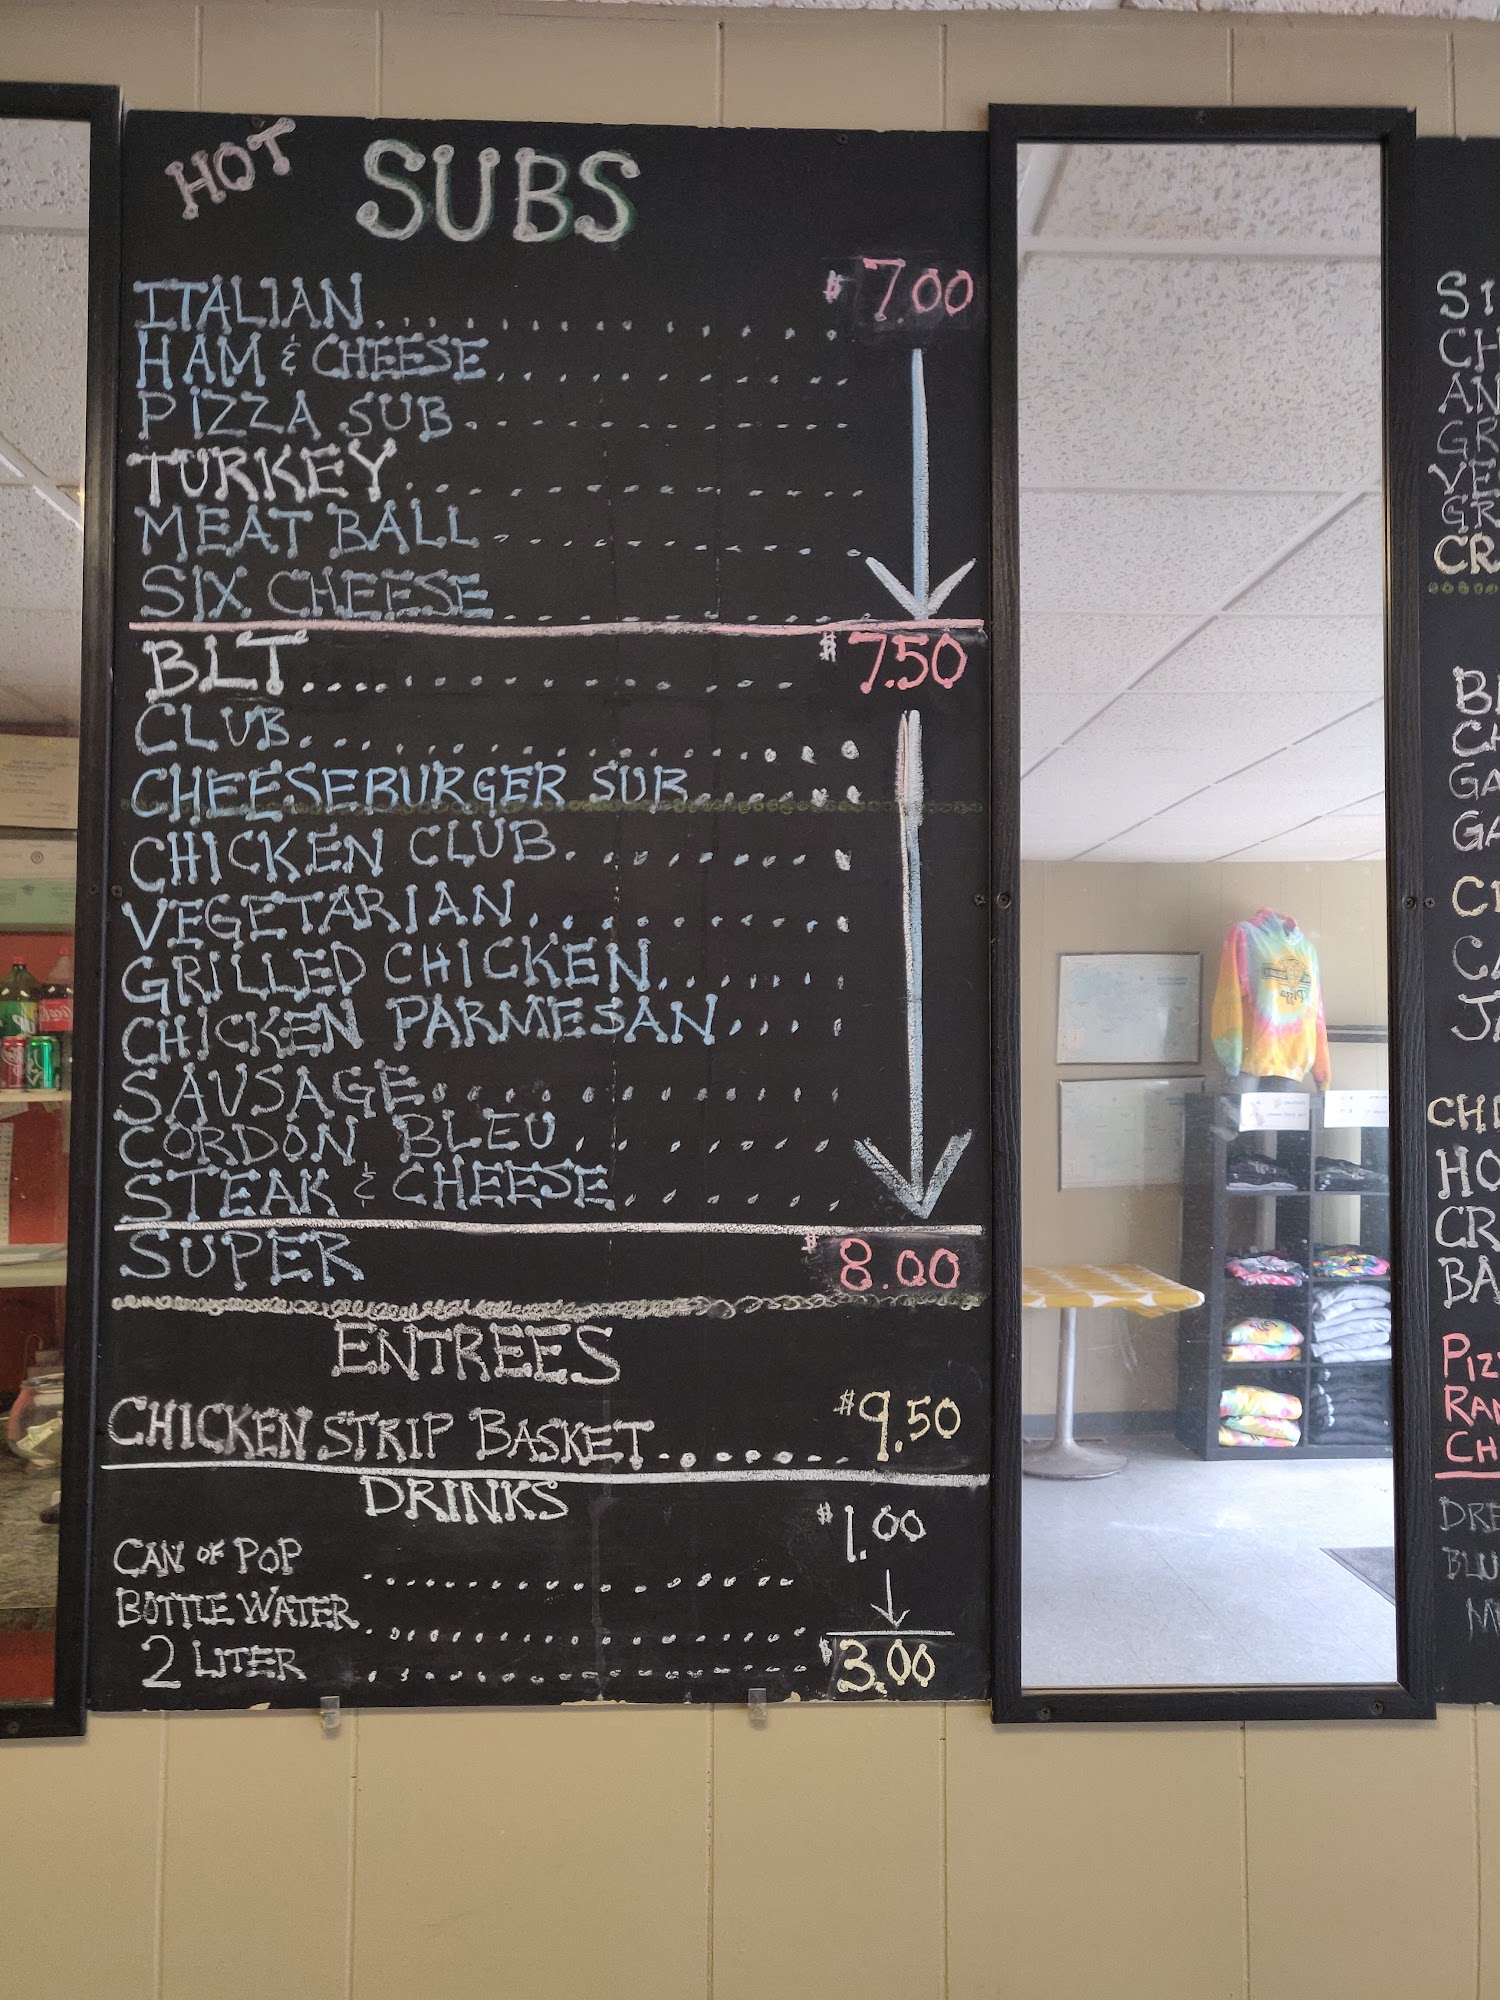 HOT SUBS
ITALIAN.................. $7.00
HAM & CHEESE..........
PIZZA SUB.............
TURKEY..............
MEAT BALL...........
SIX CHEESE...........
BLT.................. $7.50
CLUB..................
CHEESEBURGER SUB......
CHICKEN CLUB..........
VEGETARIAN..........
GRILLED CHICKEN......
CHICKEN PARMESAN....
SAUSAGE.............
CORDON BLEU........
STEAK & CHEESE.......
SUPER $8.00
ENTREES
CHICKEN STRIP BASKET....... $9.50
DRINKS
CAN OF POP ................ $1.00
BOTTLE WATER..............
2 LITER .............. $3.00